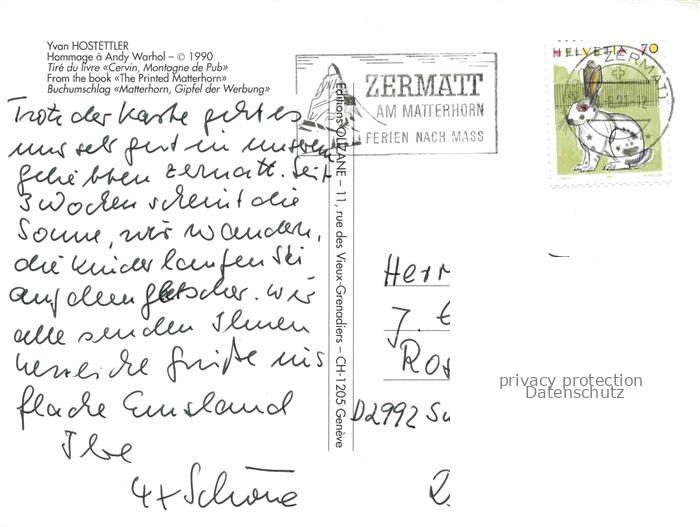 Yvan HOSTETTLER
Hommage à Andy Warhol – © 1990
Tiré du livre «Cervin, Montagne de Pub»
From the book «The Printed Matterhorn»
Buchumschlag «Matterhorn, Gipfel der Werbung»
Trotz der Karte geht es
uns sehr gut in unserem
geliebten Zermatt. Seit
3 Wochen scheint die
Sonne, wir wandern,
die Kinder laufen Ski
auf dem Gletscher. Wir
alle senden Ihnen
herzliche Grüße ins
flache Emsland
Ihre
4x Schöne
Editions OLIZANE – 11, rue des Vieux-Grenadiers – CH-1205 Genève
ZERMATT
AM MATTERHORN
FERIEN NACH MASS
HELVETIA 70
ZERMATT
Herr
J.
Ros
D2992 Su
privacy protection
Datenschutz